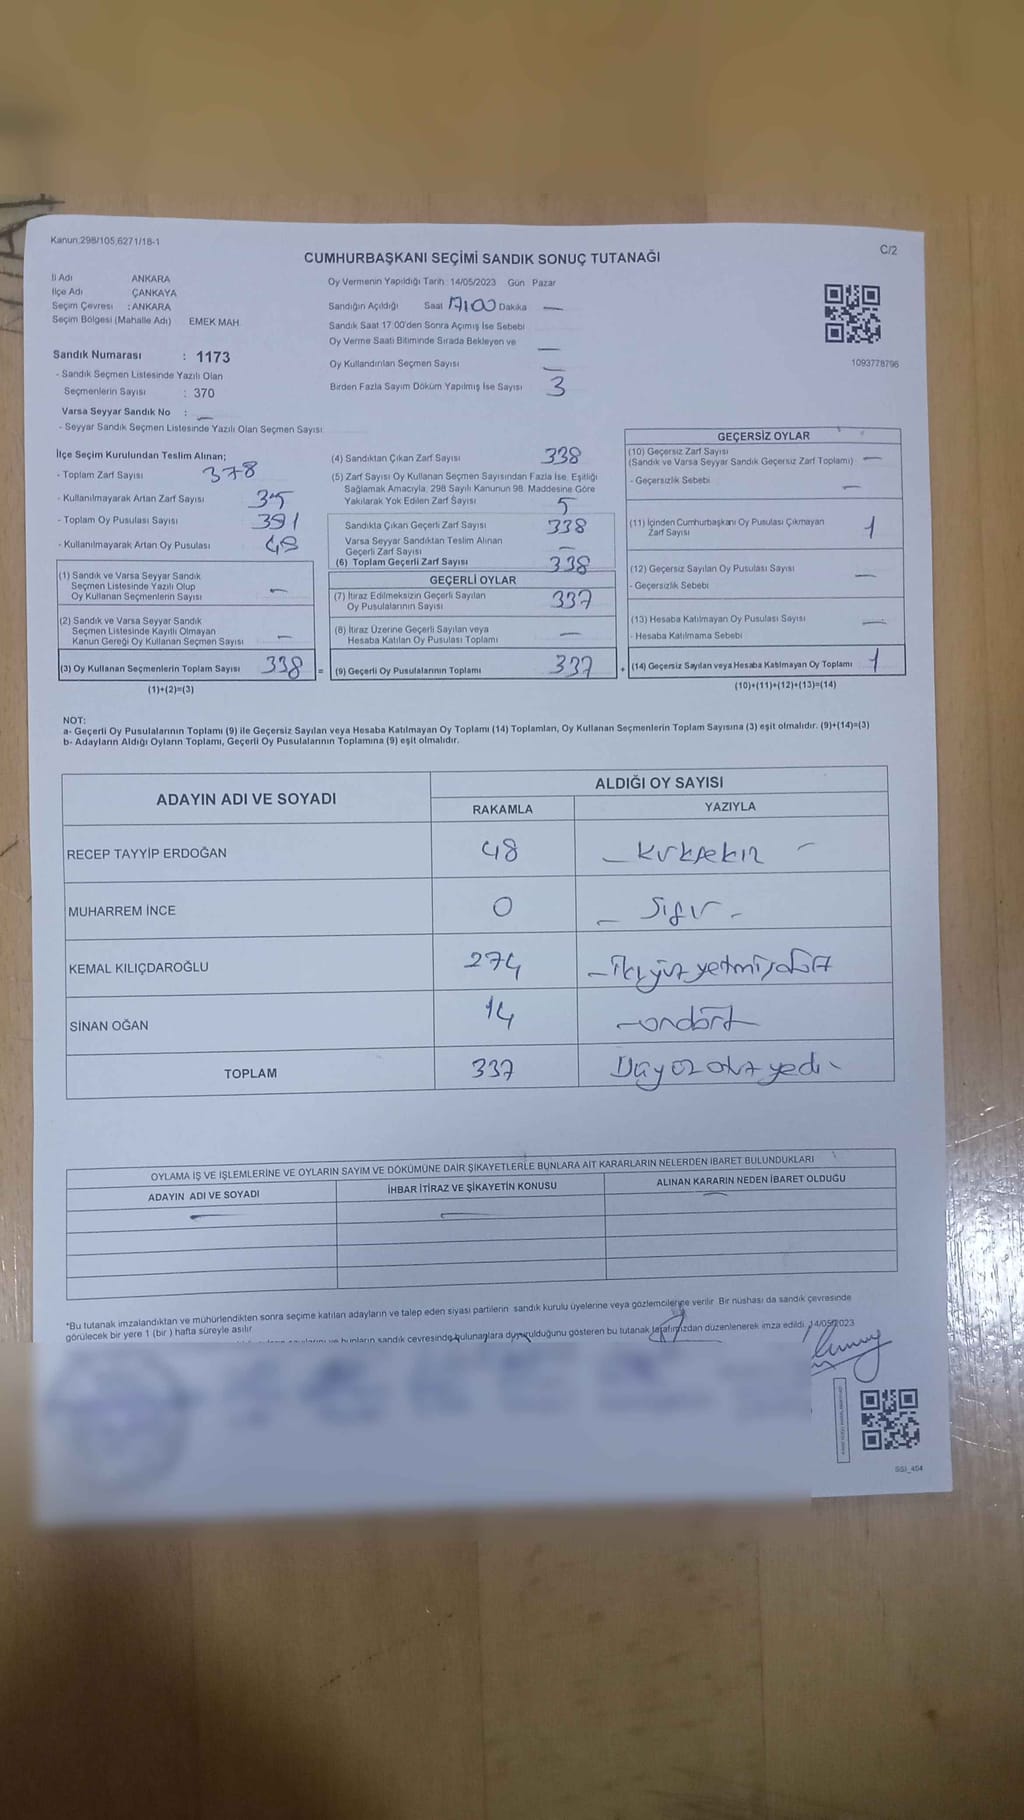 Kanun:298/105,6271/18-1
C/2
CUMHURBAŞKANI SEÇİMİ SANDIK SONUÇ TUTANAĞI
İl Adı ANKARA
İlçe Adı ÇANKAYA
Seçim Çevresi : ANKARA
Seçim Bölgesi (Mahalle Adı) EMEK MAH.
Sandık Numarası : 1173
- Sandık Seçmen Listesinde Yazılı Olan
Seçmenlerin Sayısı : 370
Varsa Seyyar Sandık No : —
- Seyyar Sandık Seçmen Listesinde Yazılı Olan Seçmen Sayısı:
Oy Vermenin Yapıldığı Tarih: 14/05/2023 Gün Pazar
Sandığın Açıldığı Saat 17:00 Dakika —
Sandık Saat 17:00'den Sonra Açımış İse Sebebi
Oy Verme Saati Bitiminde Sırada Bekleyen ve —
Oy Kullandırılan Seçmen Sayısı —
Birden Fazla Sayım Döküm Yapılmış İse Sayısı 3
1093778796
İlçe Seçim Kurulundan Teslim Alınan;
- Toplam Zarf Sayısı 378
- Kullanılmayarak Artan Zarf Sayısı 35
- Toplam Oy Pusulası Sayısı 391
- Kullanılmayarak Artan Oy Pusulası
(1) Sandık ve Varsa Seyyar Sandık
Seçmen Listesinde Yazılı Olup
Oy Kullanan Seçmenlerin Sayısı —
(2) Sandık ve Varsa Seyyar Sandık
Seçmen Listesinde Kayıtlı Olmayan
Kanun Gereği Oy Kullanan Seçmen Sayısı —
(3) Oy Kullanan Seçmenlerin Toplam Sayısı 338 =
(1)+(2)=(3)
(4) Sandıktan Çıkan Zarf Sayısı 338
(5) Zarf Sayısı Oy Kullanan Seçmen Sayısından Fazla İse, Eşitliği
Sağlamak Amacıyla, 298 Sayılı Kanunun 98. Maddesine Göre
Yakılarak Yok Edilen Zarf Sayısı 5
Sandıkta Çıkan Geçerli Zarf Sayısı 338
Varsa Seyyar Sandıktan Teslim Alınan
Geçerli Zarf Sayısı —
(6) Toplam Geçerli Zarf Sayısı 338
GEÇERLİ OYLAR
(7) İtiraz Edilmeksizin Geçerli Sayılan
Oy Pusulalarının Sayısı 337
(8) İtiraz Üzerine Geçerli Sayılan veya
Hesaba Katılan Oy Pusulası Toplamı —
(9) Geçerli Oy Pusulalarının Toplamı 337 +
GEÇERSİZ OYLAR
(10) Geçersiz Zarf Sayısı
(Sandık ve Varsa Seyyar Sandık Geçersiz Zarf Toplamı) —
- Geçersizlik Sebebi —
(11) İçinden Cumhurbaşkanı Oy Pusulası Çıkmayan
Zarf Sayısı 1
(12) Geçersiz Sayılan Oy Pusulası Sayısı —
- Geçersizlik Sebebi
(13) Hesaba Katılmayan Oy Pusulası Sayısı —
- Hesaba Katılmama Sebebi
(14) Geçersiz Sayılan veya Hesaba Katılmayan Oy Toplamı 1
(10)+(11)+(12)+(13)=(14)
NOT:
a- Geçerli Oy Pusulalarının Toplamı (9) ile Geçersiz Sayılan veya Hesaba Katılmayan Oy Toplamı (14) Toplamları, Oy Kullanan Seçmenlerin Toplam Sayısına (3) eşit olmalıdır. (9)+(14)=(3)
b- Adayların Aldığı Oyların Toplamı, Geçerli Oy Pusulalarının Toplamına (9) eşit olmalıdır.
ADAYIN ADI VE SOYADI
ALDIĞI OY SAYISI
RAKAMLA YAZIYLA
RECEP TAYYİP ERDOĞAN 48 – Kırksekiz –
MUHARREM İNCE 0 – Sıfır –
KEMAL KILIÇDAROĞLU 274 – ikiyüzyetmişdört
SİNAN OĞAN 14 – ondört
TOPLAM 337 Üçyüzotuzyedi –
OYLAMA İŞ VE İŞLEMLERİNE VE OYLARIN SAYIM VE DÖKÜMÜNE DAİR ŞİKAYETLERLE BUNLARA AİT KARARLARIN NELERDEN İBARET BULUNDUKLARI
ADAYIN ADI VE SOYADI İHBAR İTİRAZ VE ŞİKAYETİN KONUSU ALINAN KARARIN NEDEN İBARET OLDUĞU
— — —
*Bu tutanak imzalandıktan ve mühürlendikten sonra seçime katılan adayların ve talep eden siyasi partilerin sandık kurulu üyelerine veya gözlemcilerine verilir. Bir nüshası da sandık çevresinde
görülecek bir yere 1 (bir) hafta süreyle asılır.
bunların sandık çevresinde bulunanlara duyurulduğunu gösteren bu tutanak tarafımızdan düzenlenerek imza edildi. 14/05/2023
SSI_404